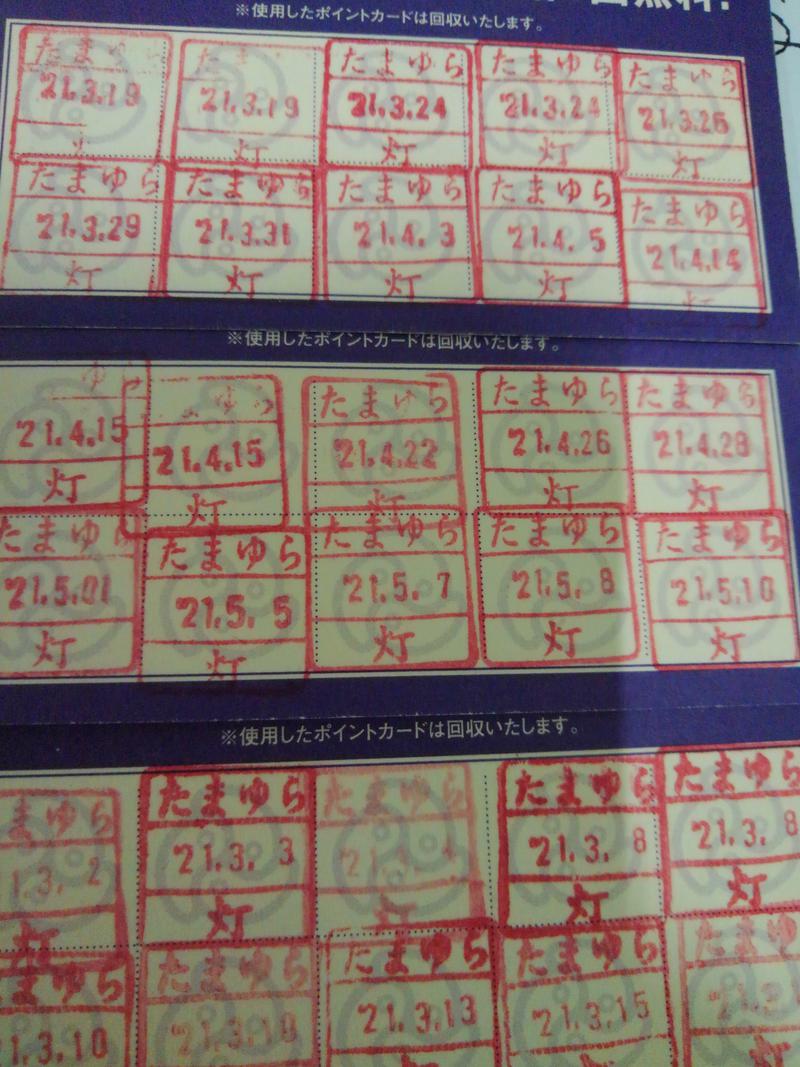 ※使用したポイントカードは回収いたします。
たまゆら たまゆら たまゆら たまゆら
21.3.19 21.3.19 21.3.24 21.3.24 21.3.26
灯 灯 灯 灯
たまゆら たまゆら たまゆら たまゆら たまゆら
21.3.29 21.3.31 21.4. 3 21.4. 5 21.4.14
灯 灯 灯 灯
※使用したポイントカードは回収いたします。
ゆ ゆら たまゆら たまゆら たまゆら
21.4.15 21.4.15 21.4.22 21.4.26 21.4.28
灯 灯 灯 灯 灯
たまゆら たまゆら たまゆら たまゆら たまゆら
21.5.01 21.5. 5 21.5. 7 21.5. 8 21.5.10
灯 灯 灯 灯 灯
※使用したポイントカードは回収いたします。
まゆら たまゆら たまゆら たまゆら たまゆら
1.3. 2 21.3. 3 21.3. 8 21.3. 8
灯 灯 灯 灯 灯
まゆら たまゆら たまゆら たまゆら たまゆら
1.3.10 21.3.10 21.3.13 21.3.15